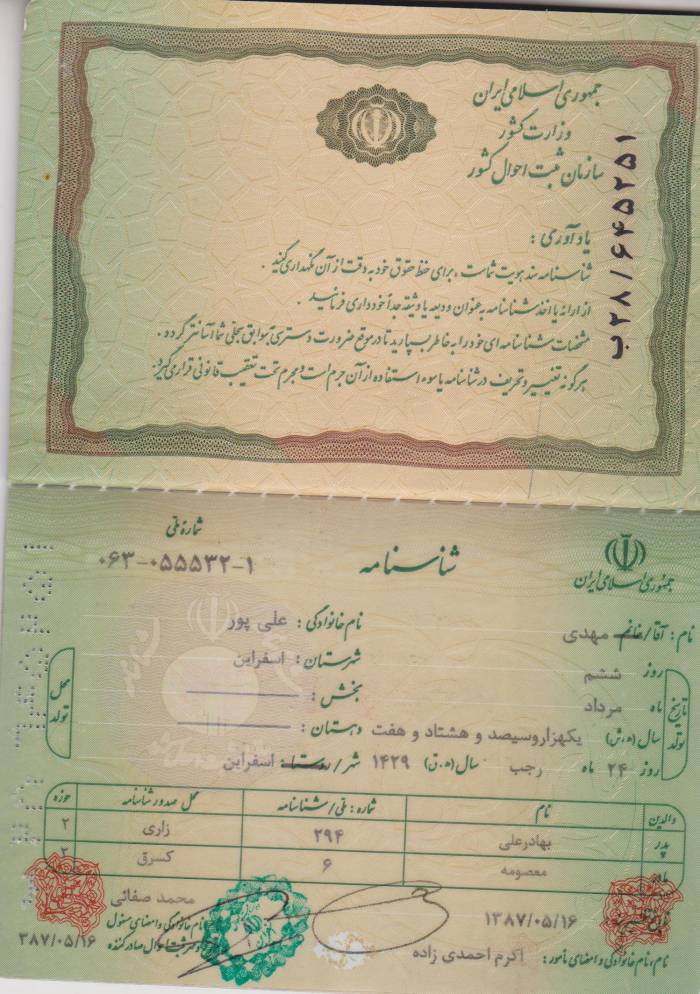 جمهوری اسلامی ایران
وزارت کشور
سازمان ثبت احوال کشور
ب۲۸/۶۴۵۲۵۱
یادآوری :
شناسنامه سند هویت شماست ، برای حفظ حقوق خود به دقت از آن نگهداری کنید .
از ارائه یا اخذ شناسنامه به عنوان ودیعه یا وثیقه جداً خودداری فرمائید .
مشخصات شناسنامه ای خود را به خاطر بسپارید تا در موقع ضرورت دسترسی بسوابق سجلی شما آسانتر گردد .
هرگونه تغییر و تحریف در شناسنامه یا سوء استفاده از آن جرم است و مجرم تحت تعقیب قانونی قرار می گیرد.
جمهوری اسلامی ایران
شناسنامه
شمارهٔ ملی
۰۶۳-۰۵۵۵۳۲-۱
نام : آقا/خانم مهدی
نام خانوادگی : علی پور
تاریخ تولد
روز ششم
ماه مرداد
سال (ه.ش) یکهزاروسیصد و هشتاد و هفت
روز ۲۴ ماه رجب سال (ه.ق) ۱۴۲۹
محل تولد
شهرستان : اسفراین
بخش :
دهستان :
شهر/روستا : اسفراین
والدین نام شماره : ملی/شناسنامه محل صدور شناسنامه حوزه
پدر بهادرعلی ۲۹۴ زاری ۲
مادر معصومه ۶ کسرق ۳
۱۳۸۷/۰۵/۱۶
نام، نام خانوادگی و امضای مأمور : اکرم احمدی زاده
محمد صفائی
نام خانوادگی و امضای مسئول
صادرکننده
۳۸۷/۰۵/۱۶